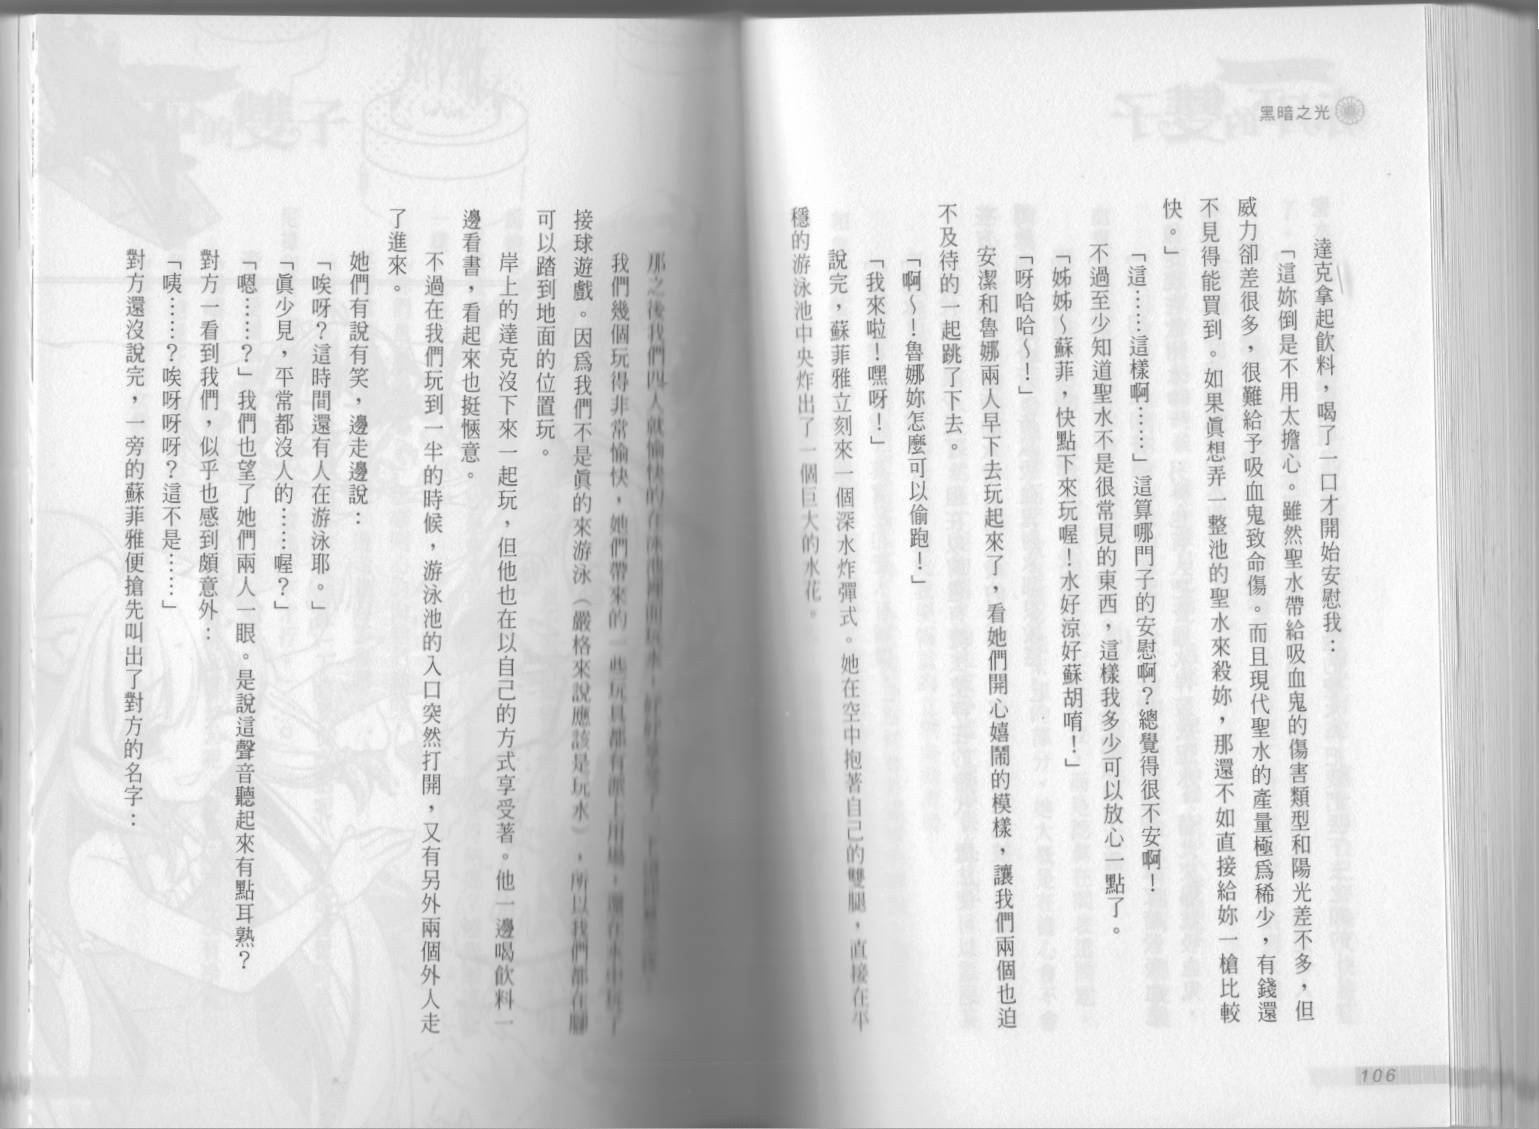 黑暗之光
達克拿起飲料，喝了一口才開始安慰我：
「這妳倒是不用太擔心。雖然聖水帶給吸血鬼的傷害類型和陽光差不多，但
威力卻差很多，很難給予吸血鬼致命傷。而且現代聖水的產量極爲稀少，有錢還
不見得能買到。如果眞想弄一整池的聖水來殺妳，那還不如直接給妳一槍比較
快。」
「這……這樣啊……」這算哪門子的安慰啊？總覺得很不安啊！
不過至少知道聖水不是很常見的東西，這樣我多少可以放心一點了。
「姊姊～蘇菲，快點下來玩喔！水好涼好蘇胡唷！」
「呀哈哈～！」
安潔和魯娜兩人早下去玩起來了，看她們開心嬉鬧的模樣，讓我們兩個也迫
不及待的一起跳了下去。
「啊～！魯娜妳怎麼可以偷跑！」
「我來啦！嘿呀！」
說完，蘇菲雅立刻來一個深水炸彈式。她在空中抱著自己的雙腿，直接在平
穩的游泳池中央炸出了一個巨大的水花。
106
那之後我們四人就愉快的在泳池裡面玩水
我們幾個玩得非常愉快，她們帶來的一些玩具都有派上用場，還在水中玩了
接球遊戲。因爲我們不是眞的來游泳（嚴格來說應該是玩水），所以我們都在腳
可以踏到地面的位置玩。
岸上的達克沒下來一起玩，但他也在以自己的方式享受著。他一邊喝飲料一
邊看書，看起來也挺愜意。
不過在我們玩到一半的時候，游泳池的入口突然打開，又有另外兩個外人走
了進來。
她們有說有笑，邊走邊說：
「唉呀？這時間還有人在游泳耶。」
「眞少見，平常都沒人的……喔？」
「嗯……？」我們也望了她們兩人一眼。是說這聲音聽起來有點耳熟？
對方一看到我們，似乎也感到頗意外：
「咦……？唉呀呀呀？這不是……」
對方還沒說完，一旁的蘇菲雅便搶先叫出了對方的名字：